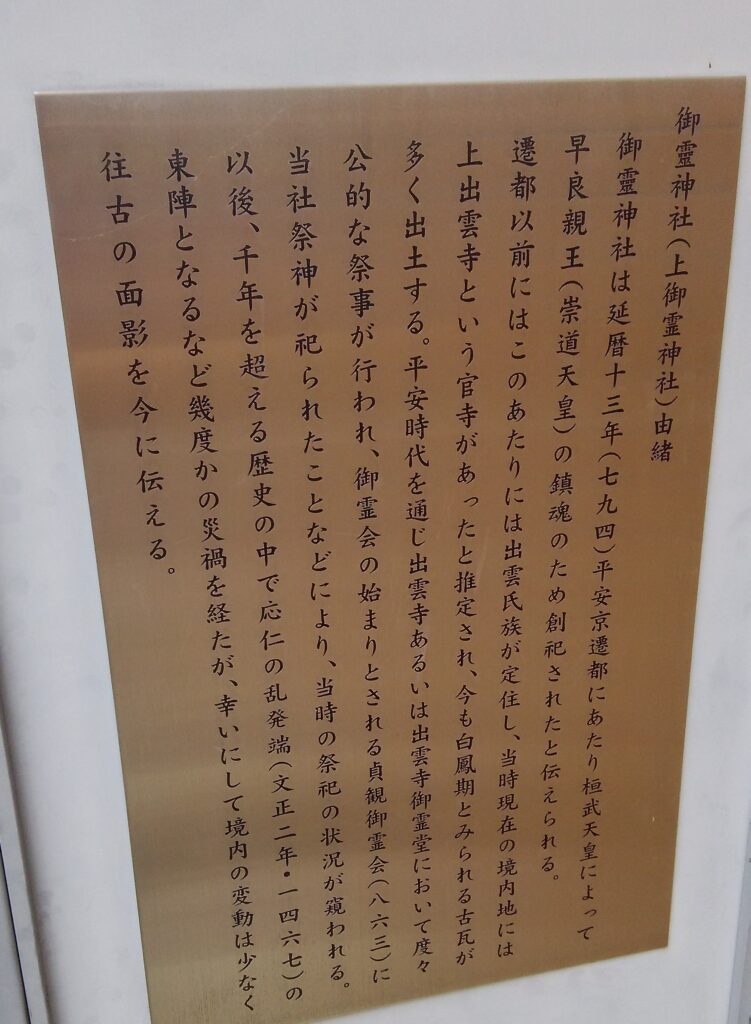 御靈神社(上御霊神社)由緒
御靈神社は延暦十三年(七九四)平安京遷都にあたり桓武天皇によって
早良親王(崇道天皇)の鎮魂のため創祀されたと伝えられる。
遷都以前にはこのあたりには出雲氏族が定住し、当時現在の境内地には
上出雲寺という官寺があったと推定され、今も白鳳期とみられる古瓦が
多く出土する。平安時代を通じ出雲寺あるいは出雲寺御霊堂において度々
公的な祭事が行われ、御霊会の始まりとされる貞観御霊会(八六三)に
当社祭神が祀られたことなどにより、当時の祭祀の状況が窺われる。
以後、千年を超える歴史の中で応仁の乱発端(文正二年・一四六七)の
東陣となるなど幾度かの災禍を経たが、幸いにして境内の変動は少なく
往古の面影を今に伝える。